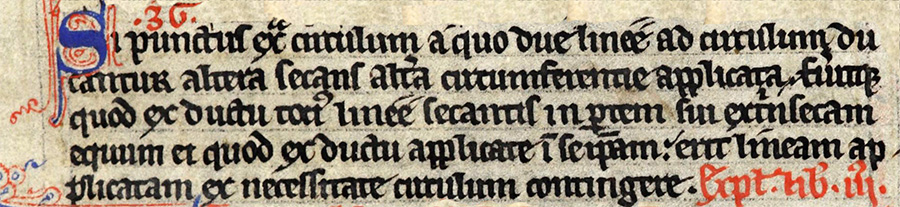 .36.
Si punctus ext͛ circulum a quo due lineẽ ad circulum du
cantur altera secans alt͛a circumferentie applicata. fu͛itque
quod ex ductu toti᷒ lineẽ secantis in p͛tem sui ext͛nsecam
equum ei quod ex ductu applicate ĩ seip̃am: erit lineam ap
plicatam ex necessitate circulum contingere. Expl̃. lib̃. iii.